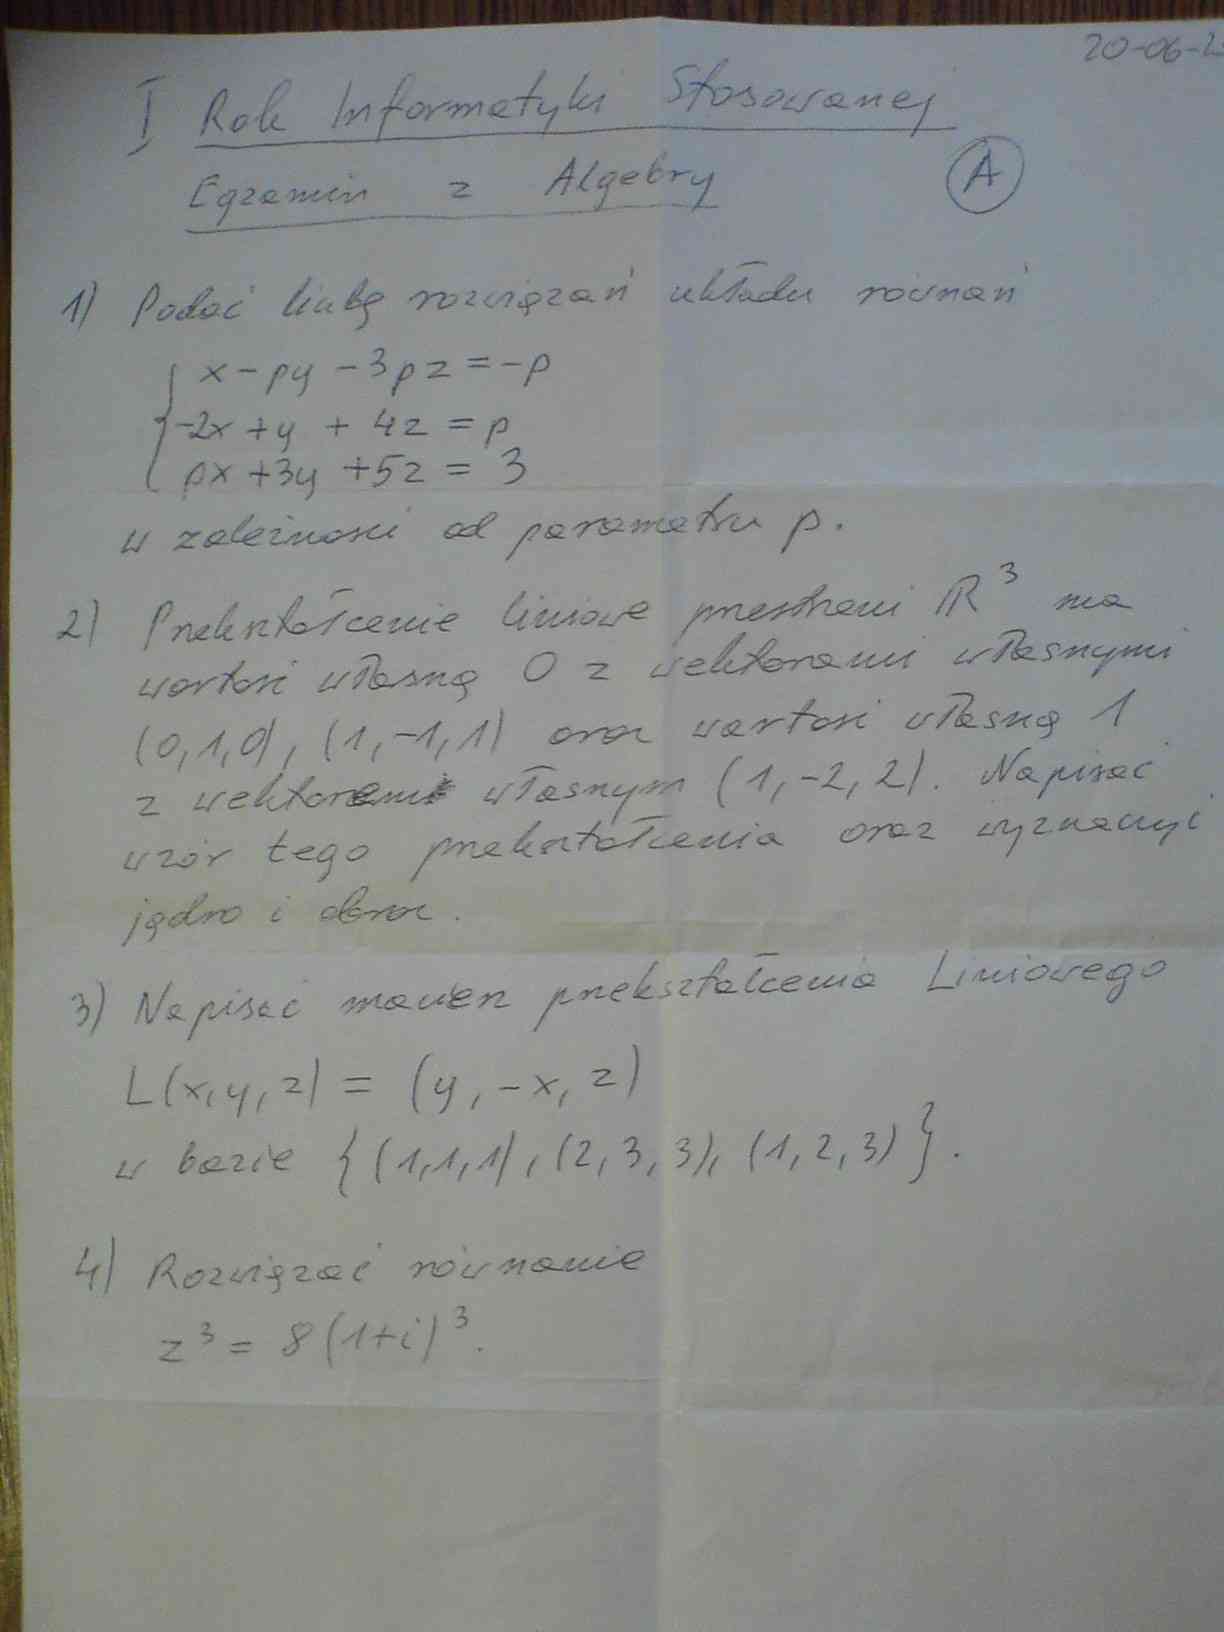 20-06-2
I Rok Informatyki Stosowanej
Egzamin z Algebry
A
1) Podać liczbę rozwiązań układu równań
x - py - 3pz = -p
-2x + y + 4z = p
px + 3y + 5z = 3
w zależności od parametru p.
2) Przekształcenie liniowe przestrzeni ℝ³ ma
wartość własną 0 z wektorami własnymi
(0,1,0), (1,-1,1) oraz wartość własną 1
z wektorem własnym (1,-2,2). Napisać
wzór tego przekształcenia oraz wyznaczyć
jądro i obraz.
3) Napisać macierz przekształcenia Liniowego
L(x,y,z) = (y,-x,z)
w bazie {(1,1,1), (2,3,3), (1,2,3)}.
4) Rozwiązać równanie
z³ = 8(1+i)³.